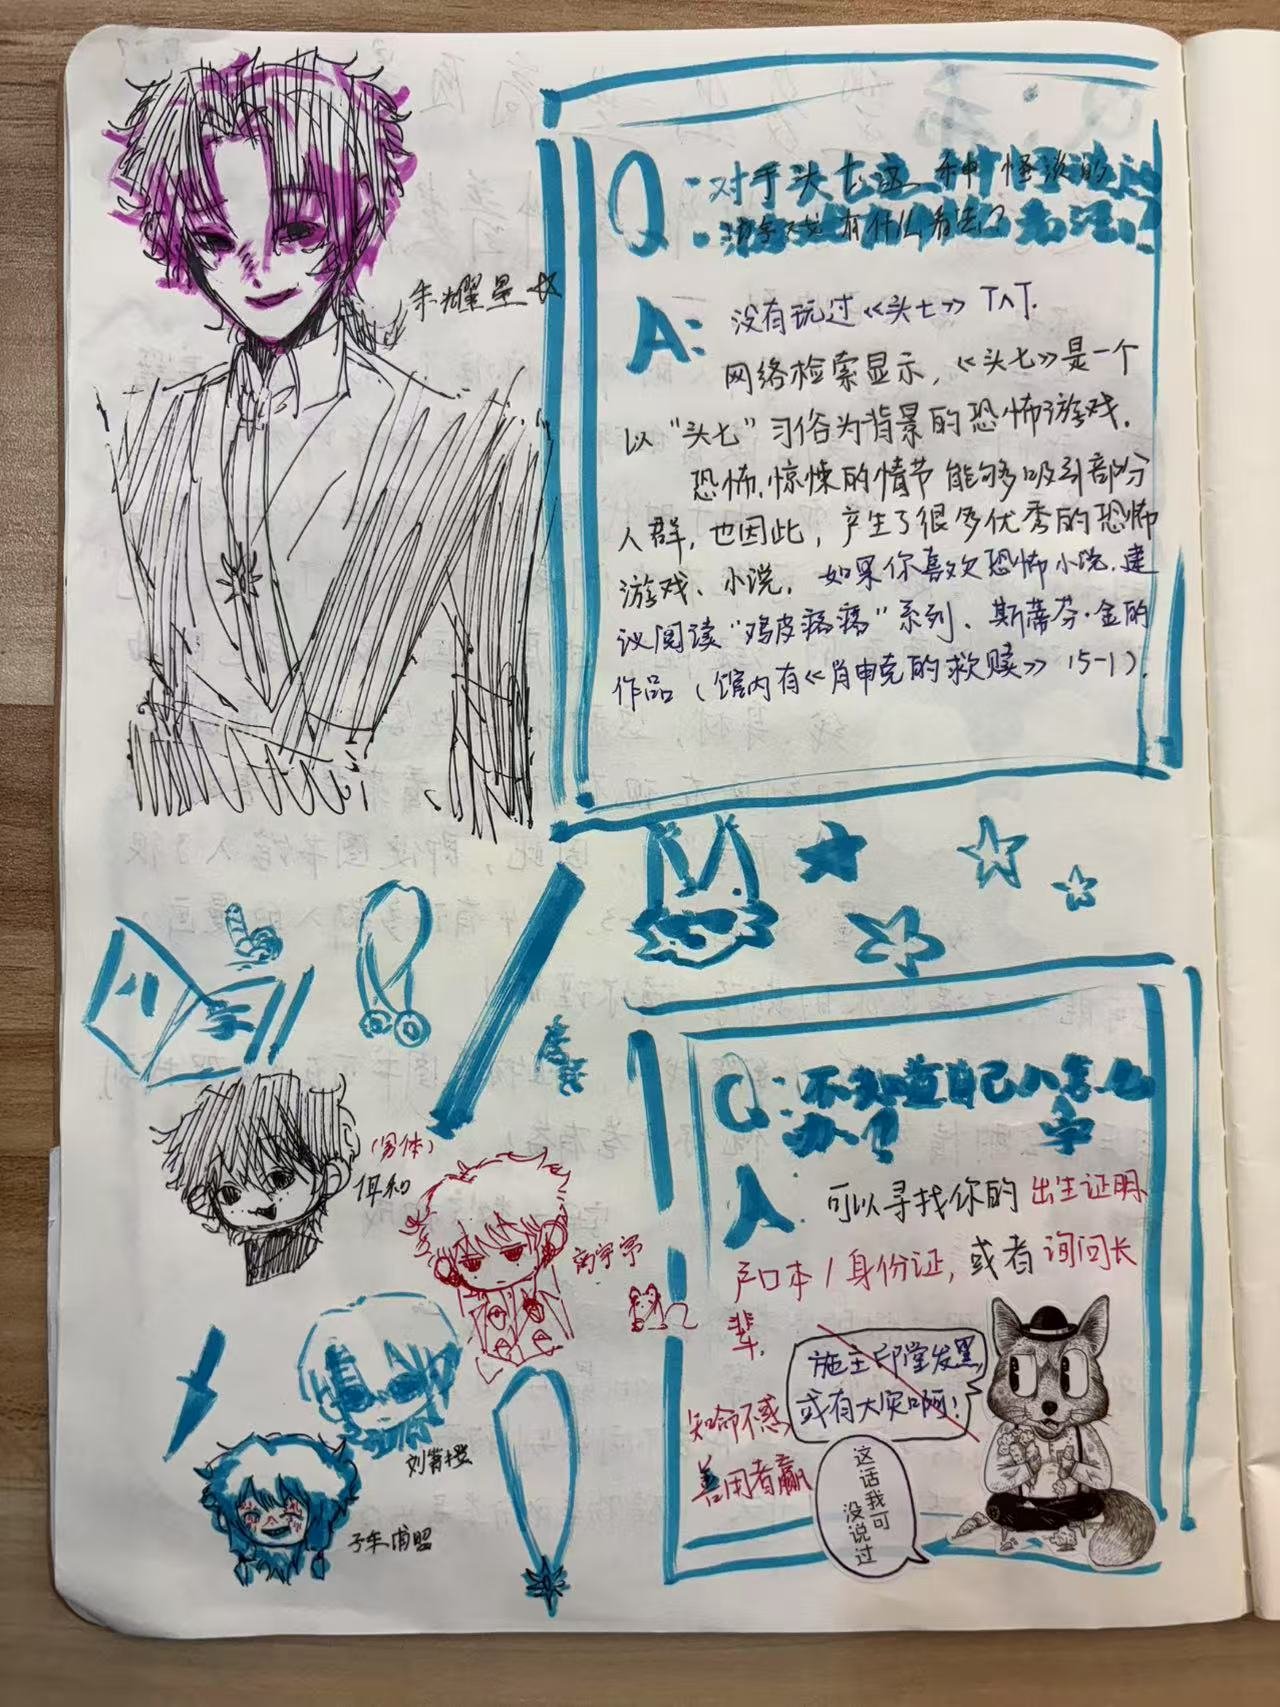 朱耀星
Q:对于头七这一种怪谈的
有什么看法?
A:没有玩过《头七》T^T.
网络检索显示,《头七》是一个
以"头七"习俗为背景的恐怖游戏.
恐怖、惊悚的情节能够吸引部分
人群,也因此,产生了很多优秀的恐怖
游戏、小说. 如果你喜欢恐怖小说,建
议阅读"鸡皮疙瘩"系列、斯蒂芬·金的
作品(馆内有《肖申克的救赎》15-1).
Q:不知道自己八字怎么
办?
A 可以寻找你的出生证明、
户口本/身份证,或者询问长
辈.
施主印堂发黑,
或有大灾啊!
知命不惑,
善用者赢
这话我可
没说过
(男体)
俱和
刘宵橙